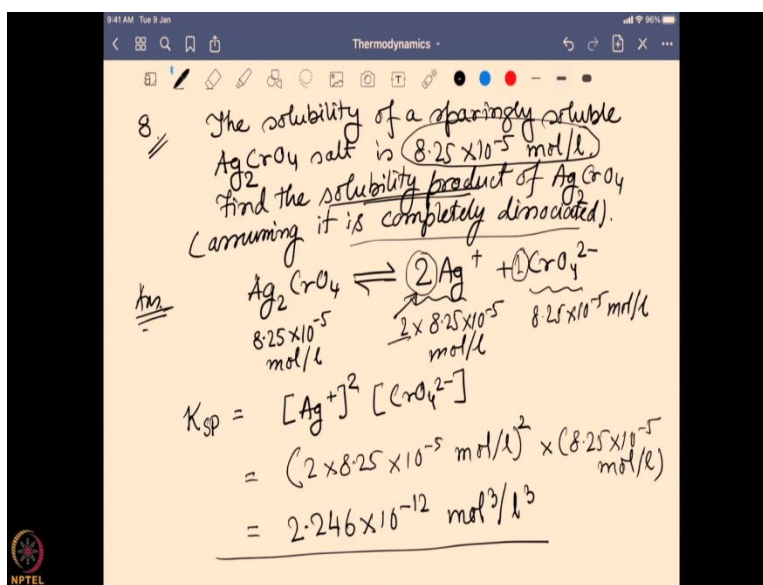 9:41 AM Tue 9 Jan
96%
Thermodynamics
8. The solubility of a sparingly soluble
Ag2CrO4 salt is 8.25 x10^-5 mol/l.
Find the solubility product of Ag2CrO4
(assuming it is completely dissociated).
Ans. Ag2CrO4 ⇌ 2Ag^+ + 1CrO4^2-
8.25 x10^-5 mol/l 2 x 8.25 x10^-5 mol/l 8.25 x10^-5 mol/l
KSP = [Ag^+]^2 [CrO4^2-]
= (2 x 8.25 x 10^-5 mol/l)^2 x (8.25 x10^-5 mol/l)
= 2.246 x 10^-12 mol^3/l^3
NPTEL